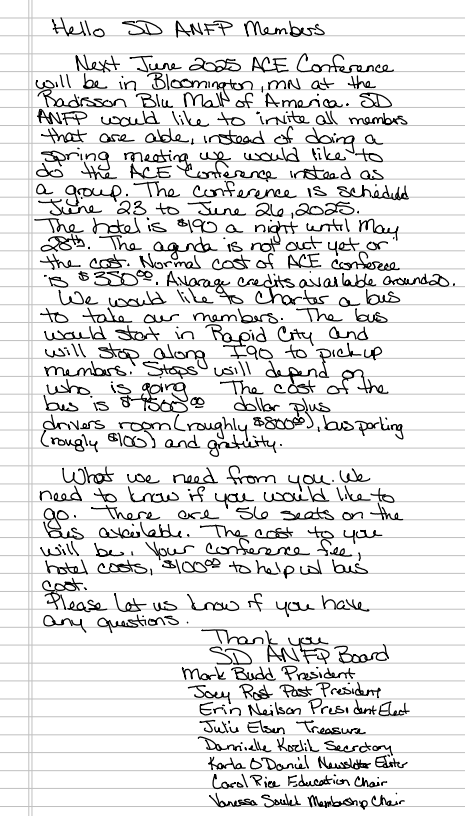 Hello SD ANFP Members
Next June 2025 ACE Conference
will be in Bloomington, MN at the
Radisson Blu Mall of America. SD
ANFP would like to invite all members
that are able, instead of doing a
spring meeting we would like to
do the ACE Conference instead as
a group. The conference is scheduled
June 23 to June 26, 2025.
The hotel is $190 a night until May
28th. The agenda is not out yet or
the cost. Normal cost of ACE conference
is $350.00. Avarage credits available around 20.
We would like to charter a bus
to take our members. The bus
would start in Rapid City and
will stop along I90 to pick up
members. Stops will depend on
who is going The cost of the
bus is $7500.00 dollar plus
drivers room (roughly $800.00), bus parking
(rougly $100) and gratuity.
What we need from you. We
need to know if you would like to
go. There are 56 seats on the
bus available. The cost to you
will be. Your conference fee,
hotel costs, $100.00 to help w/ bus
cost.
Please let us know if you have
any questions.
Thank you
SD ANFP Board
Mark Budd President
Joey Rost Past President
Erin Neilson President Elect
Julie Elsen Treasure
Dannielle Kozlik Secretary
Karla O'Daniel Newsletter Editor
Carol Rice Education Chair
Vanessa Soulek Membership Chair